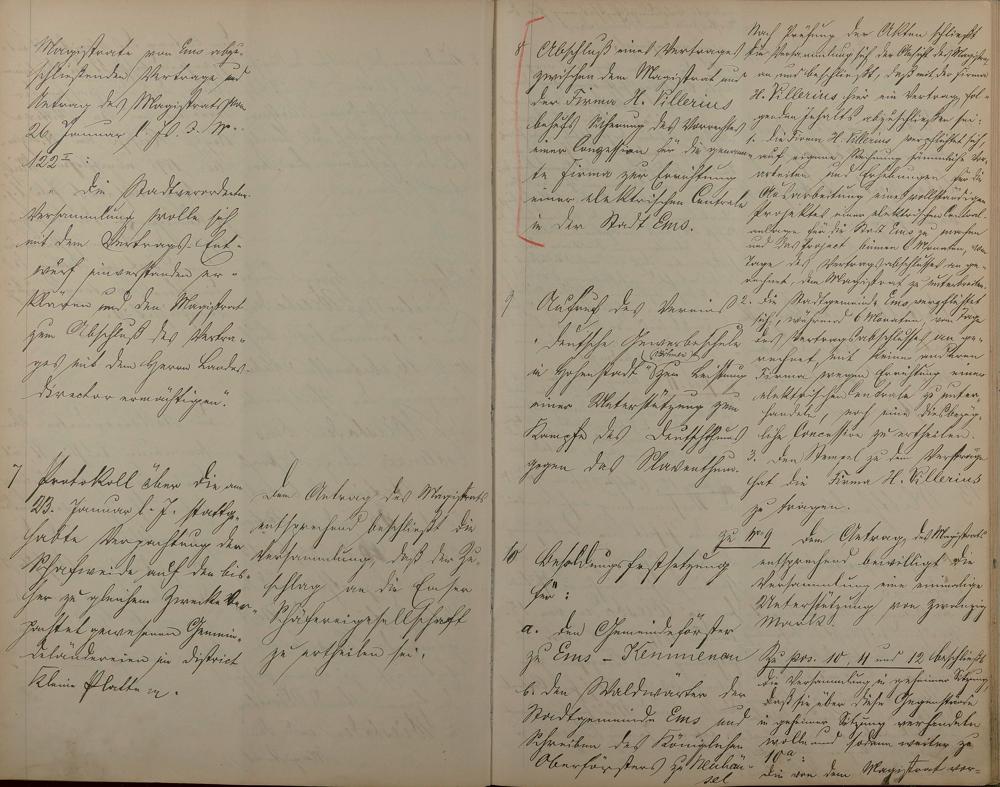 Magistrate von Ems abzu-
schließenden Vertrage und
Antrag des Magistrats vom
26. Januar l. Js. J. No.
122 I:
" Die Stadtverordneten
Versammlung wolle sich
mit dem Vertrags-Ent-
wurf einverstanden er-
klären und den Magistrat
zum Abschluß des Vertra-
ges mit dem Herrn Landes-
director ermächtigen".
7 Protokoll über die am
23. Januar l. J. stattge-
habte Verpachtung der
Schafweide auf den bis-
her zu gleichem Zwecke ver-
pachtet gewesenen Gemein-
deländereien im District
Kleine Platte
Dem Antrag des Magistrats
entsprechend beschließt die
Versammlung, daß der Zu-
schlag an die Emser
Schäfereigesellschaft
zu ertheilen sei.
8 Abschluß eines Vertrages
zwischen dem Magistrat und
der Firma H. Villerius
behufs Sicherung des Vorrechtes
einer Conzession für die genann-
te Firma zur Errichtung
einer elektrischen Centrale
in der Stadt Ems.
Nach Prüfung der Akten schließt
die Versammlung sich der Ansicht des Magistrats
an und beschließt, daß mit der Firma
H. Villerius hier ein Vertrag fol-
genden Inhalts abzuschließen sei:
1. die Firma H. Villerius verpflichtet sich,
auf eigene Rechnung sämmtliche Vor-
arbeiten und Erhebungen für die
Ausarbeitung eines vollständigen
Projektes einer elektrischen Central-
anlage für die Stadt Ems zu machen
und das Project binnen 6 Monaten, vom
Tage des Vertragsabschlusses an ge-
rechnet, dem Magistrat zu unterbreiten.
2. Die Stadtgemeinde Ems verpflichtet
sich, während 6 Monaten, vom Tage
des Vertragsabschlusses an ge-
rechnet mit keiner anderen
Firma wegen Errichtung einer
elektrischen Centrale zu unter-
handeln, noch eine diesbezüg-
liche Concession zu ertheilen.
3. Den Stempel zu dem Vertrage
hat die Firma H. Villerius
zu tragen.
9 Aufruf des Vereins
"Deutsche Gewerbeschule
in Hohenstadt" (Böhmen) zur Leistung
einer Unterstützung zum
Kampfe des Deutschthums
gegen das Slaventhum.
Zu No. 9 Dem Antrag des Magistrats
entsprechend bewilligt die
Versammlung eine einmalige
Unterstützung von zwanzig
Mark.
10 Besoldungsfestsetzung
für:
a. den Gemeindeförster
zu Ems - Kemmenau
b. den Waldwärter der
Stadtgemeinde Ems und
Schreiben des Königlichen
Oberförsters zu Neuhäu-
sel
Zu pos. 10, 11 und 12 beschließt
die Versammlung in geheimer Sitzung,
daß sie über diese Gegenstände
in geheimer Sitzung verhandeln
wolle und sodann weiter zu
10a:
die von dem Magistrat vor-